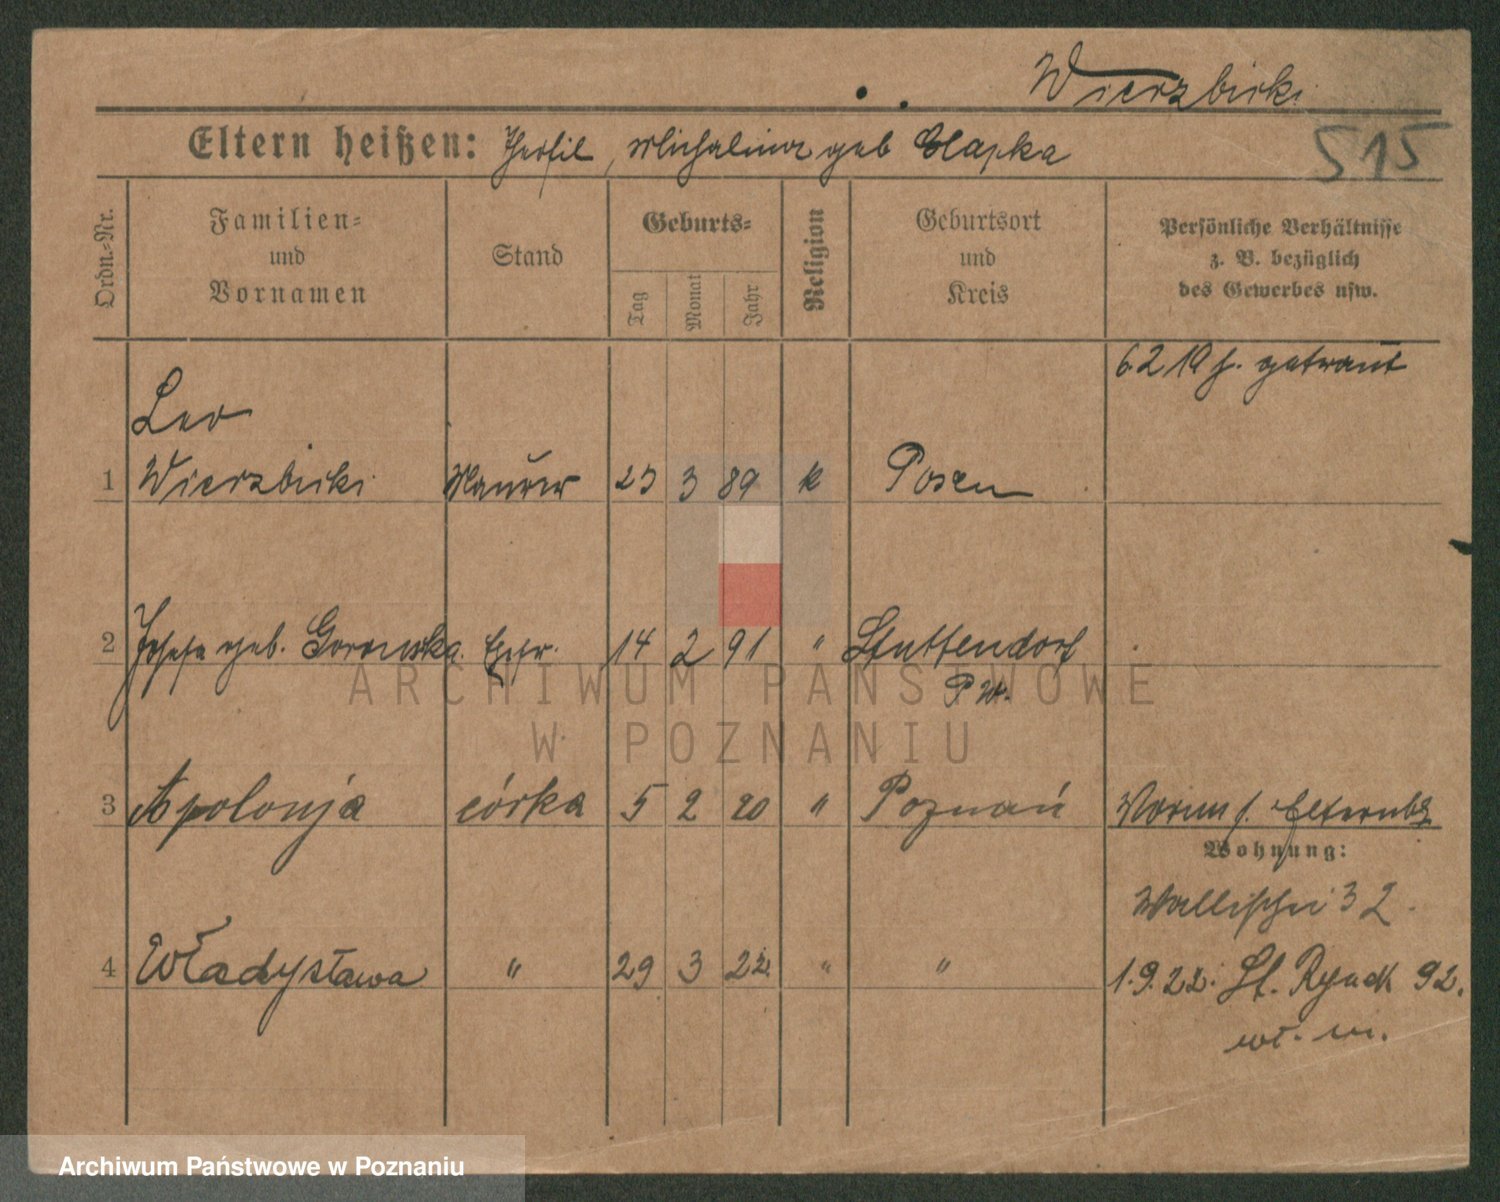 Wierzbicki
515
Eltern heißen: Theofil, Michalina gebClapka
Ordn.-Nr.
Familien- und Vornamen
Stand
Geburts-
Tag
Monat
Jahr
Religion
Geburtsort und Kreis
Persönliche Verhältnisse z. B. bezüglich des Gewerbes usw.
6.2.19 h. getraut
Leo
1 Wierzbicki Maurer 23 3 89 k Posen
2 Josefa geb. Gorowska Ehefr. 14 2 91 " Stuttendorf
P W.
3 Apolonja córka 5 2 20 " Poznań
Elternbl
Wohnung:
Wallischei 32.
4 Władysława " 29 3 22 " "
1.9.22. St. Rynek 92.
wł. m.
ARCHIWUM PAŃSTWOWE
W POZNANIU
Archiwum Państwowe w Poznaniu